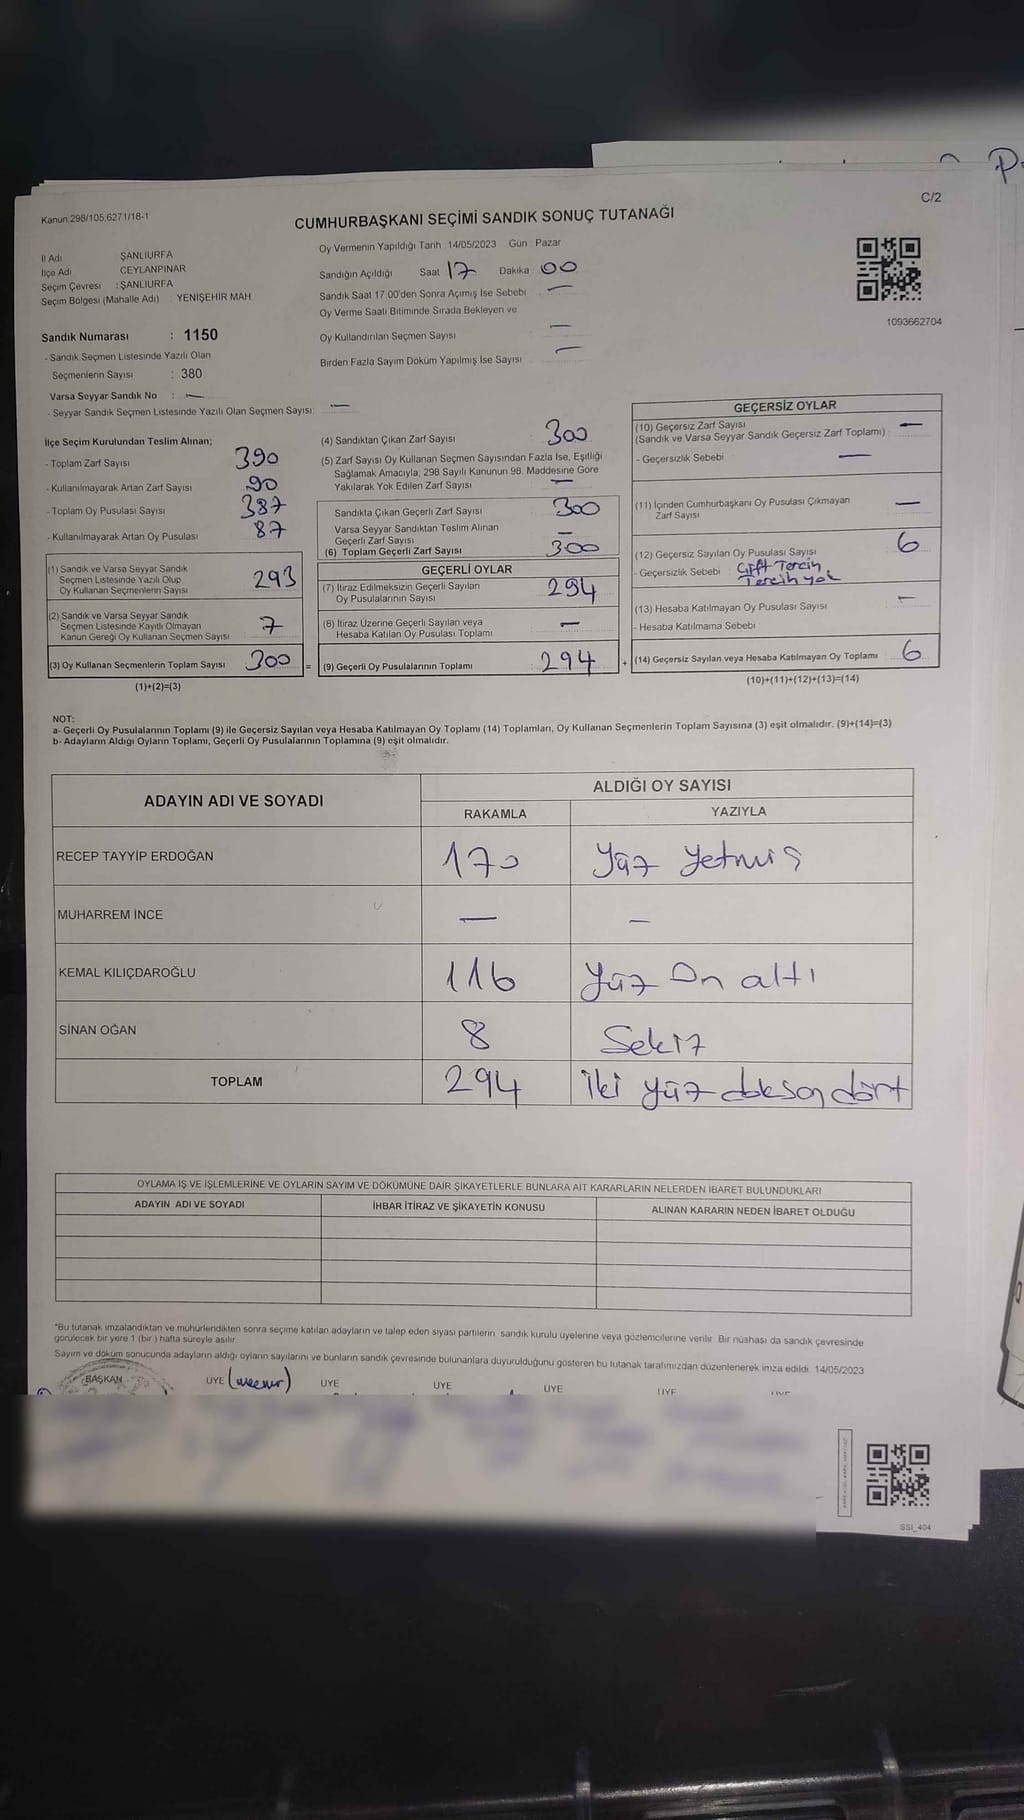 C/2
Kanun:298/105,6271/18-1
CUMHURBAŞKANI SEÇİMİ SANDIK SONUÇ TUTANAĞI
1093662704
İl Adı ŞANLIURFA
İlçe Adı CEYLANPINAR
Seçim Çevresi : ŞANLIURFA
Seçim Bölgesi (Mahalle Adı) : YENİŞEHİR MAH.
Sandık Numarası : 1150
- Sandık Seçmen Listesinde Yazılı Olan
Seçmenlerin Sayısı : 380
Varsa Seyyar Sandık No : —
- Seyyar Sandık Seçmen Listesinde Yazılı Olan Seçmen Sayısı: —
Oy Vermenin Yapıldığı Tarih : 14/05/2023 Gün : Pazar
Sandığın Açıldığı Saat 17 Dakika 00
Sandık Saat 17:00'den Sonra Açımış İse Sebebi —
Oy Verme Saati Bitiminde Sırada Bekleyen ve
Oy Kullandırılan Seçmen Sayısı —
Birden Fazla Sayım Döküm Yapılmış İse Sayısı —
İlçe Seçim Kurulundan Teslim Alınan;
- Toplam Zarf Sayısı 390
- Kullanılmayarak Artan Zarf Sayısı 90
- Toplam Oy Pusulası Sayısı 387
- Kullanılmayarak Artan Oy Pusulası 87
(1) Sandık ve Varsa Seyyar Sandık
Seçmen Listesinde Yazılı Olup
Oy Kullanan Seçmenlerin Sayısı 293
(2) Sandık ve Varsa Seyyar Sandık
Seçmen Listesinde Kayıtlı Olmayan
Kanun Gereği Oy Kullanan Seçmen Sayısı 7
(3) Oy Kullanan Seçmenlerin Toplam Sayısı 300 =
(1)+(2)=(3)
(4) Sandıktan Çıkan Zarf Sayısı 300
(5) Zarf Sayısı Oy Kullanan Seçmen Sayısından Fazla İse, Eşitliği
Sağlamak Amacıyla, 298 Sayılı Kanunun 98. Maddesine Göre
Yakılarak Yok Edilen Zarf Sayısı —
Sandıkta Çıkan Geçerli Zarf Sayısı 300
Varsa Seyyar Sandıktan Teslim Alınan
Geçerli Zarf Sayısı —
(6) Toplam Geçerli Zarf Sayısı 300
GEÇERLİ OYLAR
(7) İtiraz Edilmeksizin Geçerli Sayılan
Oy Pusulalarının Sayısı 294
(8) İtiraz Üzerine Geçerli Sayılan veya
Hesaba Katılan Oy Pusulası Toplamı —
(9) Geçerli Oy Pusulalarının Toplamı 294 +
GEÇERSİZ OYLAR
(10) Geçersiz Zarf Sayısı
(Sandık ve Varsa Seyyar Sandık Geçersiz Zarf Toplamı) : —
- Geçersizlik Sebebi —
(11) İçinden Cumhurbaşkanı Oy Pusulası Çıkmayan
Zarf Sayısı —
(12) Geçersiz Sayılan Oy Pusulası Sayısı 6
- Geçersizlik Sebebi : Çift Tercih
Tercih yok
(13) Hesaba Katılmayan Oy Pusulası Sayısı —
- Hesaba Katılmama Sebebi
(14) Geçersiz Sayılan veya Hesaba Katılmayan Oy Toplamı 6
(10)+(11)+(12)+(13)=(14)
NOT:
a- Geçerli Oy Pusulalarının Toplamı (9) ile Geçersiz Sayılan veya Hesaba Katılmayan Oy Toplamı (14) Toplamları, Oy Kullanan Seçmenlerin Toplam Sayısına (3) eşit olmalıdır. (9)+(14)=(3)
b- Adayların Aldığı Oyların Toplamı, Geçerli Oy Pusulalarının Toplamına (9) eşit olmalıdır.
ADAYIN ADI VE SOYADI ALDIĞI OY SAYISI
RAKAMLA YAZIYLA
RECEP TAYYİP ERDOĞAN 170 Yüz Yetmiş
MUHARREM İNCE — —
KEMAL KILIÇDAROĞLU 116 Yüz On altı
SİNAN OĞAN 8 Sekiz
TOPLAM 294 İki yüz doksan dört
OYLAMA İŞ VE İŞLEMLERİNE VE OYLARIN SAYIM VE DÖKÜMÜNE DAİR ŞİKAYETLERLE BUNLARA AİT KARARLARIN NELERDEN İBARET BULUNDUKLARI
ADAYIN ADI VE SOYADI İHBAR İTİRAZ VE ŞİKAYETİN KONUSU ALINAN KARARIN NEDEN İBARET OLDUĞU
*Bu tutanak imzalandıktan ve mühürlendikten sonra seçime katılan adayların ve talep eden siyasi partilerin sandık kurulu üyelerine veya gözlemcilerine verilir. Bir nüshası da sandık çevresinde
görülecek bir yere 1 (bir ) hafta süreyle asılır.
Sayım ve döküm sonucunda adayların aldığı oyların sayılarını ve bunların sandık çevresinde bulunanlara duyurulduğunu gösteren bu tutanak tarafımızdan düzenlenerek imza edildi. 14/05/2023
BAŞKAN ÜYE (memur) ÜYE ÜYE ÜYE ÜYE ÜYE
SSI_404